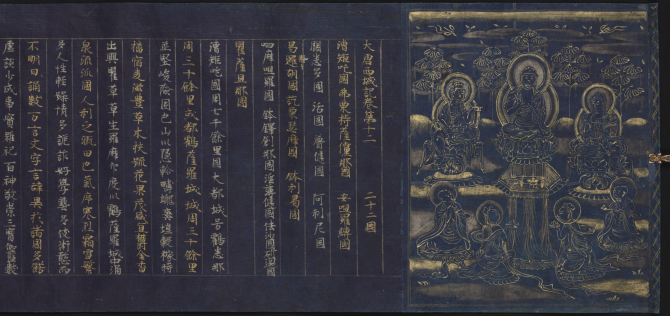 大唐西域記卷第十二　二十二國
漕矩吒國　弗栗恃薩儻那國　安呾羅縛國
闊悉多國　活國　瞢健國　阿利尼國
曷邏胡國　訖栗瑟摩國　鉢利曷國
呬摩呾羅國　鉢鐸創那國　淫薄健國
瞿薩旦那國
漕矩吒國周七千餘里國大都城号鶴悉那
周三十餘里或都鶴薩羅城城周三十餘里
並堅峻險固也山川隱軫疇壠爽塏穀稼時
播宿麥滋豊草木扶疏花果茂盛宜欝金香
出興瞿草草生羅摩印度川鶴薩羅城中涌
泉流派國人利之溉田也氣序寒烈霜雪繁
多人性輕躁情多詭詐好學藝多伎術聰而
不明日誦數万言文字言辞異於諸國多飾
虚談少成事實雖祀百神敬崇三寶伽藍數